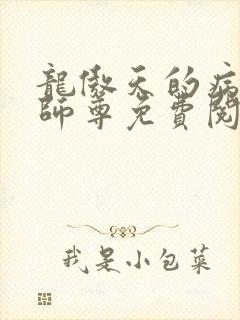 龍傲天的病
師尊免費閱
我是小包菜